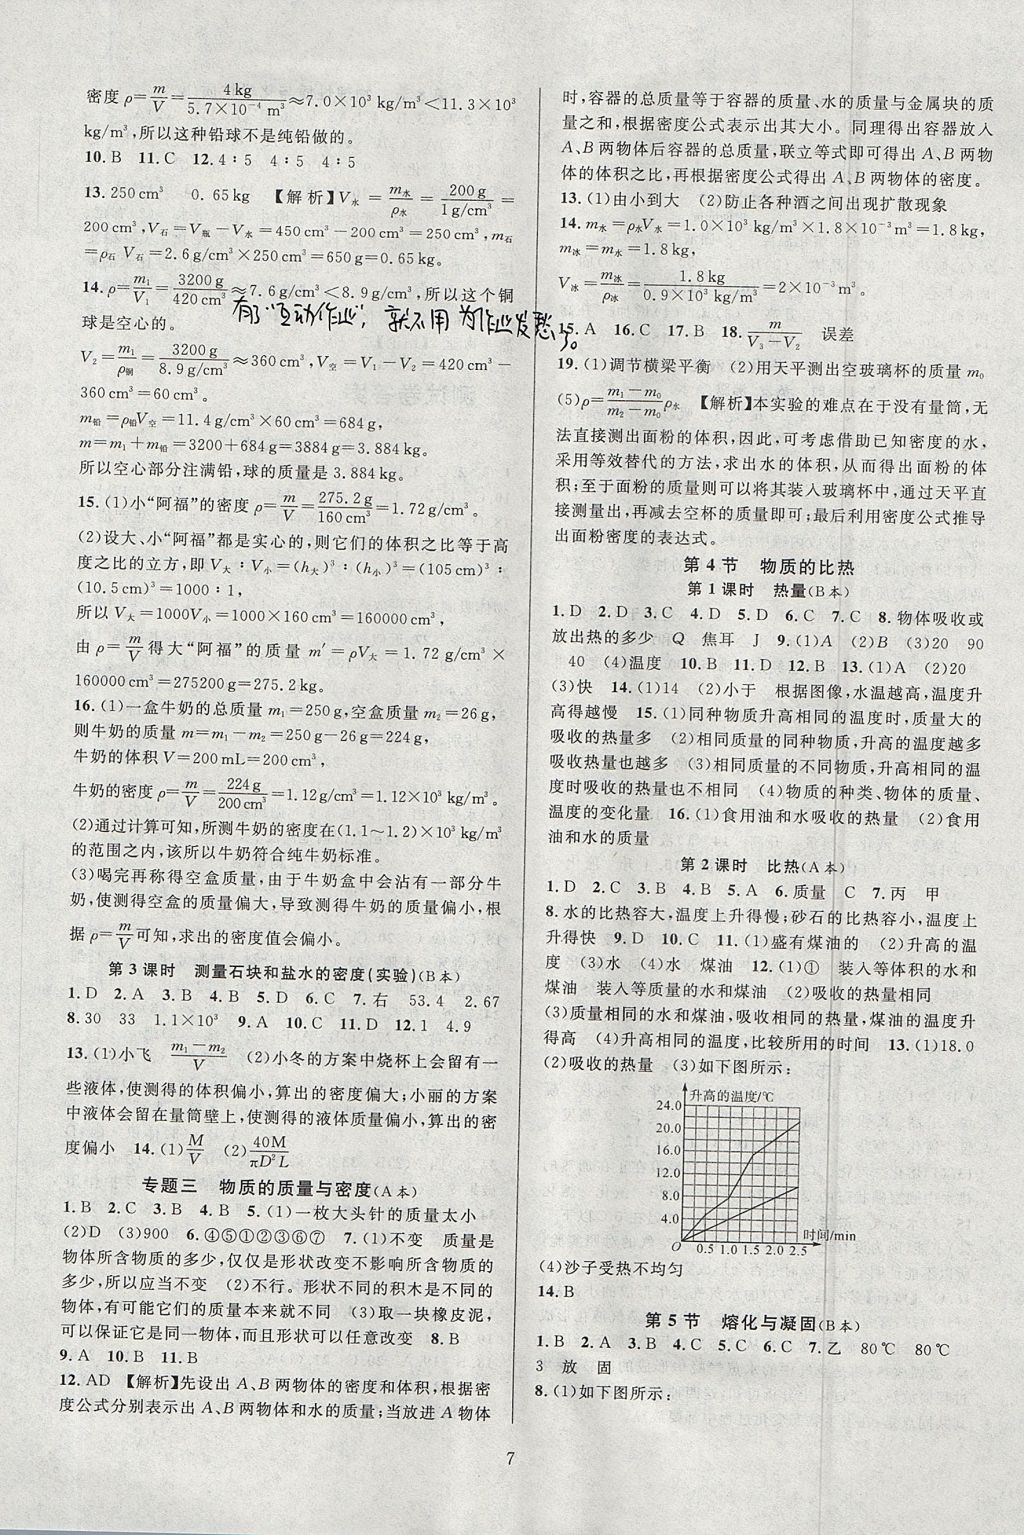 密度ρ=m/V=4kg/(5.7×10⁻⁴ m³)≈7.0×10³ kg/m³<11.3×10³
kg/m³,所以这种铅球不是纯铅做的。
10.B 11.C 12.4∶5 4∶5 4∶5
13.250cm³ 0.65kg 【解析】V水=m水/ρ水=200g/(1g/cm³)=
200cm³,V石=V瓶-V水=450cm³-200cm³=250cm³,m石
=ρ石V石=2.6g/cm³×250cm³=650g=0.65kg。
14.ρ=m₁/V₁=3200g/420cm³≈7.6g/cm³<8.9g/cm³,所以这个铜
球是空心的。
有了"互动作业",就不用为作业发愁了。
V₂=m₁/ρ铜=3200g/(8.9g/cm³)≈360cm³,V空=V₁-V₂=420cm³-
360cm³=60cm³。
m铅=ρ铅V空=11.4g/cm³×60cm³=684g,
m=m₁+m铅=3200+684g=3884g=3.884kg。
所以空心部分注满铅,球的质量是3.884kg。
15.(1)小“阿福”的密度ρ=m/V=275.2g/160cm³=1.72g/cm³。
(2)设大、小“阿福”都是实心的,则它们的体积之比等于高
度之比的立方,即V大∶V小=(h大)³∶(h小)³=(105cm)³∶
(10.5cm)³=1000∶1,
所以V大=1000V小=1000×160cm³=160000cm³,
由ρ=m/V得大“阿福”的质量m′=ρV大=1.72g/cm³×
160000cm³=275200g=275.2kg。
16.(1)一盒牛奶的总质量m₁=250g,空盒质量m₂=26g,
则牛奶的质量m=m₁-m₂=250g-26g=224g,
牛奶的体积V=200mL=200cm³,
牛奶的密度ρ=m/V=224g/200cm³=1.12g/cm³=1.12×10³kg/m³。
(2)通过计算可知,所测牛奶的密度在(1.1~1.2)×10³kg/m³
的范围之内,该所以牛奶符合纯牛奶标准。
(3)喝完再称得空盒质量,由于牛奶盒中会沾有一部分牛
奶,使测得空盒的质量偏大,导致测得牛奶的质量偏小,根
据ρ=m/V可知,求出的密度值会偏小。
第3课时 测量石块和盐水的密度(实验)(B本)
1.D 2.A 3.B 4.B 5.D 6.C 7.右 53.4 2.67
8.30 33 1.1×10³ 9.A 10.C 11.D 12.1 4.9
13.(1)小飞 (m₁-m₂)/V (2)小冬的方案中烧杯上会留有一
些液体,使测得的体积偏小,算出的密度偏大;小丽的方案
中液体会留在量筒壁上,使测得的液体质量偏小,算出的密
度偏小 14.(1)M/V (2)40M/(πD²L)
专题三 物质的质量与密度(A本)
1.B 2.C 3.B 4.B 5.(1)一枚大头针的质量太小
(2)D (3)900 6.④⑤①②③⑥⑦ 7.(1)不变 质量是
物体所含物质的多少,仅仅是形状改变不影响所含物质的
多少,所以应当不变 (2)不行。形状不同的积木是不同的
物体,有可能它们的质量本来就不同 (3)取一块橡皮泥,
可以保证它是同一物体,而且形状可以任意改变 8.B
9.A 10.B 11.B
12.AD 【解析】先设出A、B两物体的密度和体积,根据密
度公式分别表示出A、B两物体和水的质量;当放进A物体
时,容器的总质量等于容器的质量、水的质量与金属块的质
量之和,根据密度公式表示出其大小。同理得出容器放入
A、B两物体后容器的总质量,联立等式即可得出A、B两物
体的体积之比,再根据密度公式得出A、B两物体的密度。
13.(1)由小到大 (2)防止各种酒之间出现扩散现象
14.m水=ρ水V水=1.0×10³kg/m³×1.8×10⁻³m³=1.8kg,
m冰=m水=1.8kg,
V冰=m冰/ρ冰=1.8kg/(0.9×10³kg/m³)=2×10⁻³m³。
15.A 16.C 17.B 18.m/(V₃-V₂) 误差
19.(1)调节横梁平衡 (2)用天平测出空玻璃杯的质量m₀
(5)(m₁-m₀)/(m₂-m₀)ρ水 【解析】本实验的难点在于没有量筒,无
法直接测出面粉的体积,因此,可考虑借助已知密度的水,
采用等效替代的方法,求出水的体积,从而得出面粉的体
积;至于面粉的质量则可以将其装入玻璃杯中,通过天平直
接测量出,再减去空杯的质量即可;最后利用密度公式推导
出面粉密度的表达式。
第4节 物质的比热
第1课时 热量(B本)
1.D 2.D 3.C 4.D 5.D 6.C 7.C 8.物体吸收或
放出热的多少 Q 焦耳 J 9.(1)A (2)B (3)20 90
40 (4)温度 10.B 11.D 12.B 13.(1)A (2)20
(3)快 14.(1)14 (2)小于 根据图像,水温越高,温度升
高得越慢 15.(1)同种物质升高相同的温度时,质量大的
吸收的热量多 (2)相同质量的同种物质,升高的温度越多
吸收热量也越多 (3)相同质量的不同物质,升高相同的
温度时吸收的热量也不相同 (4)物质的种类、物体的质量、
温度的变化量 16.(1)食用油和水吸收的热量 (2)食用
油和水的质量
第2课时 比热(A本)
1.D 2.B 3.C 4.B 5.A 6.质量 C 7.丙 甲
8.水的比热容大,温度上升得慢;砂石的比热容小,温度上
升得快 9.D 10.D 11.(1)盛有煤油的 (2)升高的温
度 (3)水 (4)水 煤油 12.(1)① 装入等体积的水和
煤油 装入等质量的水和煤油 (2)吸收的热量相同
(3)质量相同的水和煤油,吸收相同的热量,煤油的温度
升得高 (4)升高相同的温度,比较所用的时间 13.(1)18.0
(2)吸收的热量 (3)如下图所示:
升高的温度/℃
24.0
20.0
16.0
12.0
8.0
4.0
O 0.5 1.0 1.5 2.0 2.5 时间/min
(4)沙子受热不均匀
14.B
第5节 熔化与凝固(B本)
1.B 2.A 3.B 4.C 5.C 6.C 7.乙 80℃ 80℃
3 放 固
8.(1)如下图所示:
7